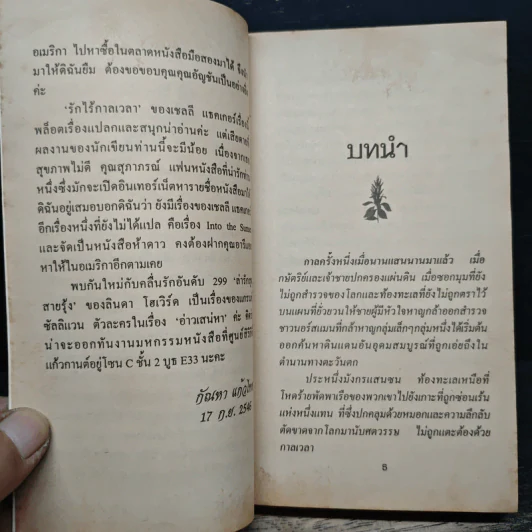 อเมริกา ไปหาซื้อในตลาดหนังสือมือสองมาได้
มาให้ดิฉันยืม ต้องขอขอบคุณคุณอัญชันเป็นอย่าง
ค่ะ
'รักไร้กาลเวลา' ของเชลลี แธคเกอร์เรื่อง
พล็อตเรื่องแปลกและสนุกน่าอ่านค่ะ แต่เสียดาย
ผลงานของนักเขียนท่านนี้จะมีน้อย เนื่องจาก
สุขภาพไม่ดี คุณสุภาภรณ์ แฟนหนังสือที่น่ารัก
หนึ่งซึ่งมักจะเปิดอินเทอร์เน็ตหารายชื่อหนังสือมา
ดิฉันอยู่เสมอบอกดิฉันว่า ยังมีเรื่องของเชลลี
อีกเรื่องหนึ่งที่ยังไม่ได้แปล คือเรื่อง Into the
และจัดเป็นหนังสือห้าดาว คงต้องฝากคุณ
หาให้ในอเมริกาอีกตามเคย
พบกันใหม่กับคลื่นรักอันดับ 299
สายรุ้ง' ของลินดา โฮเวิร์ด เป็นเรื่องของ
ซัลลีแวน ตัวละครในเรื่อง 'อ่าวเสน่หา' ค่ะ
น่าจะออกทันงานมหกรรมหนังสือที่ศูนย์
แก้วกานต์อยู่โซน C ชั้น 2 บูธ E33 นะคะ
กัณหา แก้วไทย
17 ก.ย. 254
บทนำ
กาลครั้งหนึ่งเมื่อนานแสนนานมาแล้ว เมื่อ
กษัตริย์และเจ้าชายปกครองแผ่นดิน เมื่อซอกมุมที่ยัง
ไม่ถูกสำรวจของโลกและท้องทะเลที่ยังไม่ถูกตราไว้
บนแผนที่ยั่วยวนให้ชายผู้มีหัวใจหาญกล้าออกสำรวจ
ชาวนอร์สแมนที่กล้าหาญกลุ่มเล็กๆกลุ่มหนึ่งได้เริ่มต้น
ออกค้นหาดินแดนอันอุดมสมบูรณ์ที่ถูกเอ่ยถึงใน
ตำนานทางตะวันตก
ประหนึ่งมังกรแสนซน ท้องทะเลเหนือที่
โหดร้ายพัดพาเรือของพวกเขาไปยังเกาะที่ถูกซ่อนเร้น
แห่งหนึ่งแทน ที่ซึ่งปกคลุมด้วยหมอกและความลึกลับ
ตัดขาดจากโลกมานับศตวรรษ ไม่ถูกแตะต้องด้วย
กาลเวลา
5